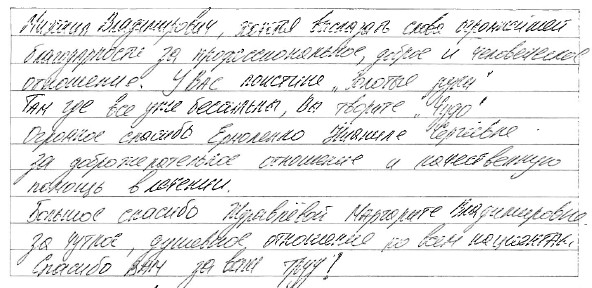 Михаил Владимирович, хотим высказать слова огромнейшей
благодарности за профессиональное, доброе и человеческое
отношение. У Вас поистине „Золотые руки"
Там где все уже бессильны, Вы творите „Чудо"
Огромное спасибо Ермоленко Сергеевне
за доброжелательное отношение и качественную
помощь в лечении.
Большое спасибо Журавлёвой Маргарите Владимировне
за чуткое, душевное, отношение ко всем пациентам.
Спасибо ВАМ за ваш труд!